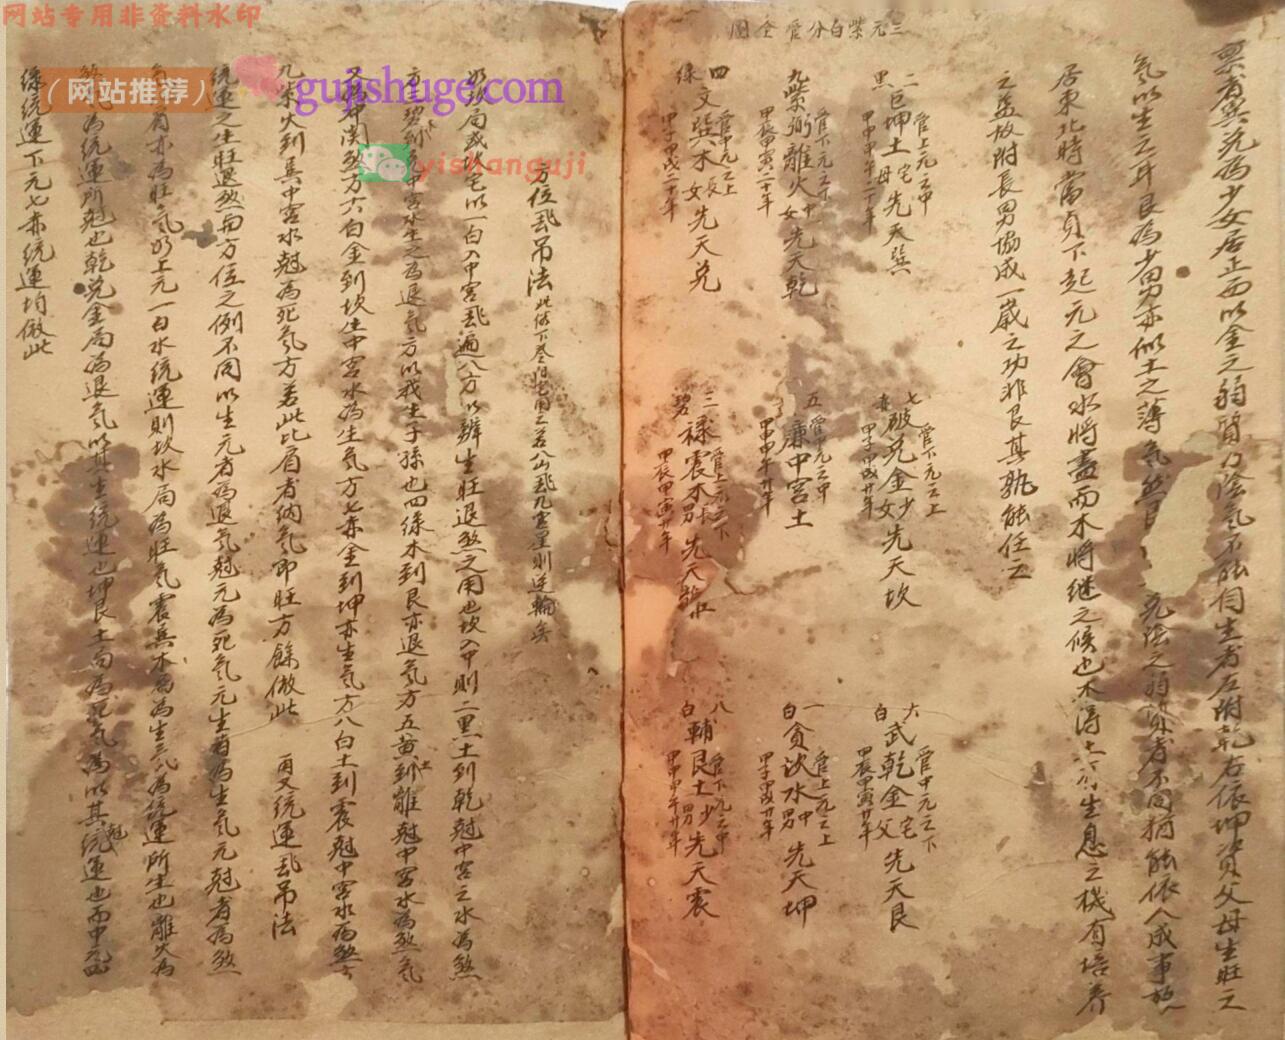 网站专用非资料水印
（网站推荐）
gujishuge.com
yishanguji
三元紫白分管全圖
票者與兌為少女居正西以金之弱質力陰氣不能自生者左附乾右依坤資父母生旺之
氣以生之耳艮為少男亦似土之薄氣然艮
之弱質者不同猶能依人成事
居東北時當貞下起元之會水將盡而木將继之候也不得土
生息之機有培养
之益故附長男協成一歲之功非艮其孰能任之
二黑巨坤土宅母先天巽
管上元之中
甲申甲午二十年
七赤破兌金少女先天坎
管下元之上
甲子甲戌廿年
六白武乾金宅父先天艮
管中元之下
甲辰甲寅廿年
九紫弼離火中女先天乾
管下元之下
甲辰甲寅二十年
五廉中宮土
管中元之中
甲申甲午廿年
一白貪坎水中男先天坤
管上元之上
甲子甲戌廿年
四綠文巽木長女先天兌
管中元之上
甲子甲戌二十年
三碧祿震木長男先天離
管上元之下
甲辰甲寅廿年
八白輔艮土少男先天震
管下元之中
甲申甲午廿年
方位飛吊法
如坎局或坎宅以一白入中宮飛遍八方以辨生旺退煞之用也坎入中則二黑土到乾尅中宮之水為煞
方三碧木到兌中宮水生之為退氣方以我生子孫也四绿木到艮亦退氣方五黄土到離尅中宮水為煞氣
煞方六白金到坎生中宮水為生氣方七赤金到坤亦生氣方八白土到震尅中宮水為煞方
九紫火到巽中宮水尅為死氣方若此比肩者納氣即旺方餘倣此
再又統運飛吊法
統運之生旺退煞與方位之例不同以生元者為退氣尅元為死氣元生者為生氣元尅者為煞
氣比肩亦為旺氣如上元一白水統運則坎水局為旺氣震巽木局為生氣為統運所生也離火為
煞氣為統運所尅也乾兌金局為退氣以其生統運也坤艮土局為死氣為以其尅統運也而中元四
绿統運下元七赤統運均倣此